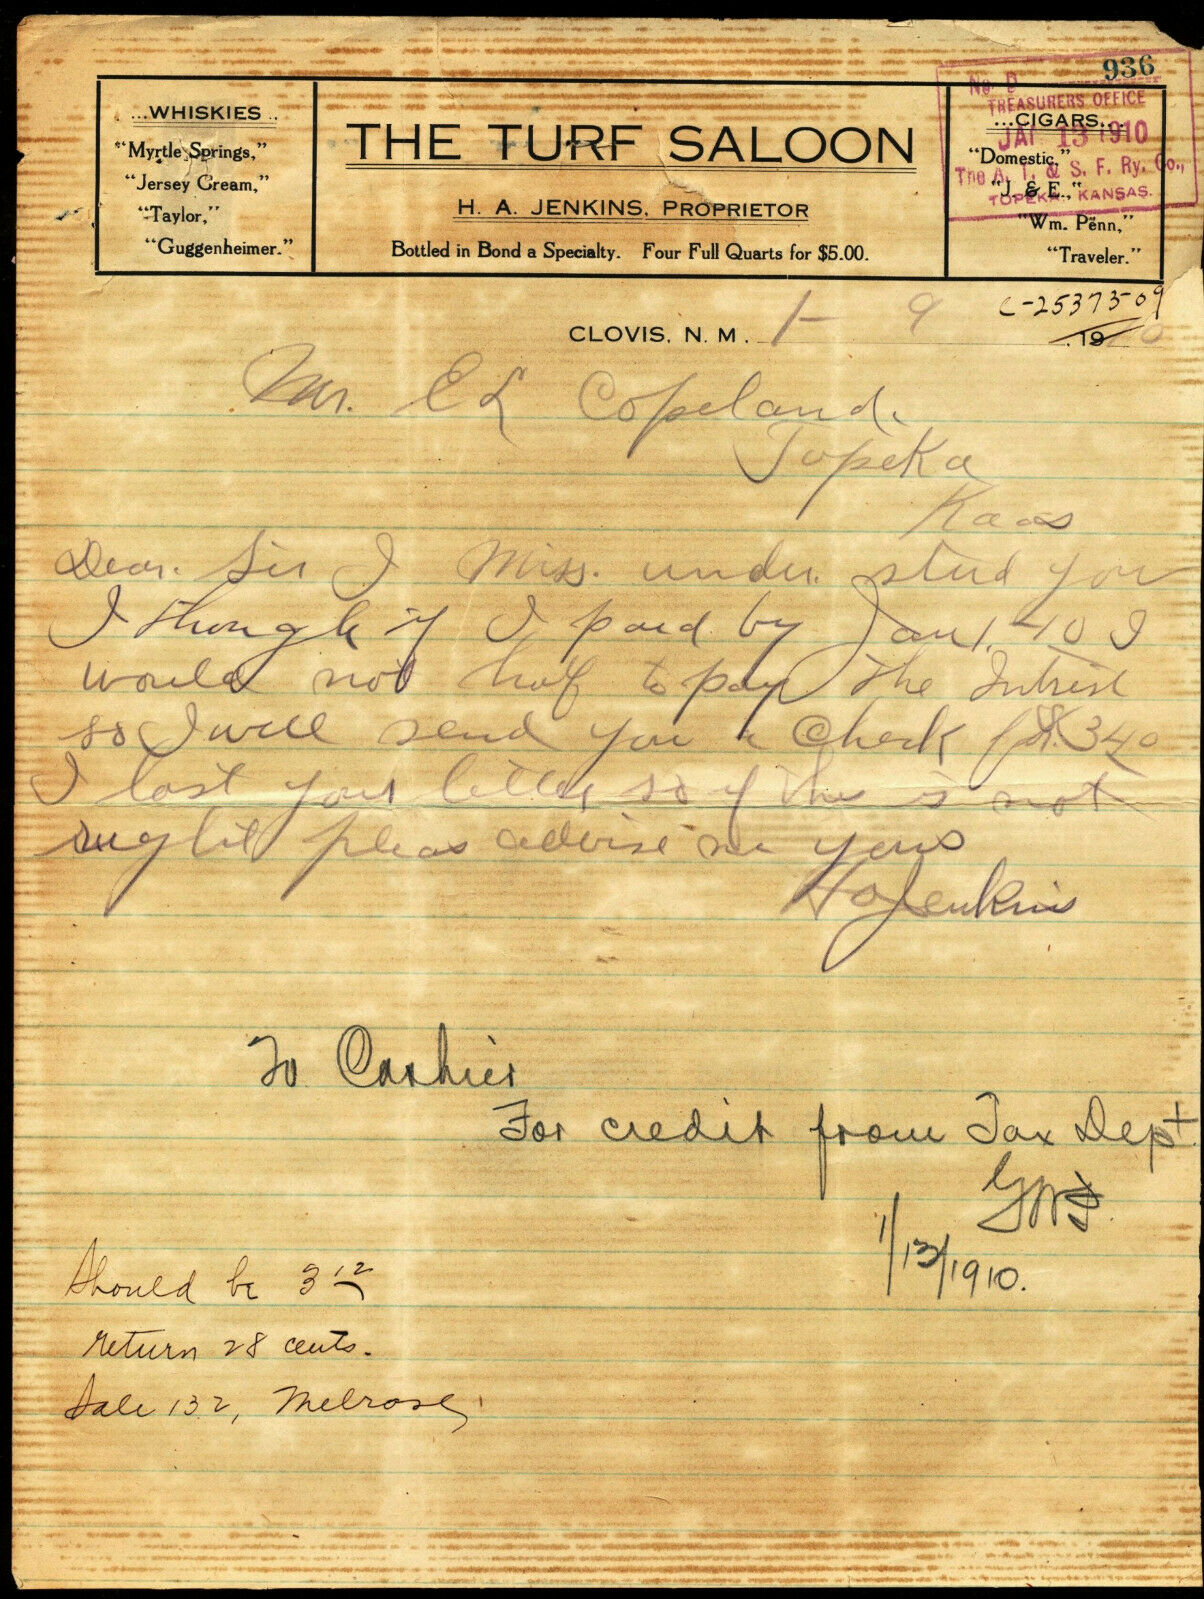 936
No. D
TREASURERS OFFICE
JAN 13 1910
The A. T. & S. F. Ry. Co.,
TOPEKA, KANSAS.
...WHISKIES..
"Myrtle Springs,"
"Jersey Cream,"
"Taylor,"
"Guggenheimer."
THE TURF SALOON
H. A. JENKINS, PROPRIETOR
Bottled in Bond a Specialty. Four Full Quarts for $5.00.
...CIGARS...
"Domestic,"
"J. & E.,"
"Wm. Penn,"
"Traveler."
C-25373-09
CLOVIS, N. M. 1-9 1910
Mr. E L Copeland.
Topeka
Kas
Dear. Sir I Miss. under. stud you
I though if I paid by Jan 1. 10 I
would not haf to pay the Intrist
so I will send you a Check for. 340
I lost your letter so if this is not
right pleas advise me yours
H a Jenkins
To Cashier
For credit from Tax Dept
1/13/1910.
Should be 3 12
return 28 cents.
Sale 132, Melrose